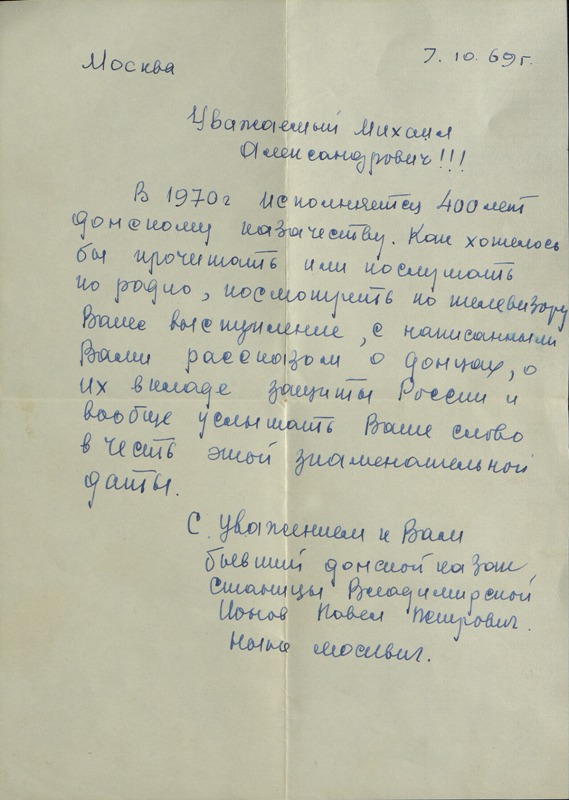 Москва
7. 10. 69 г.
Уважаемый Михаил
Александрович!!!
В 1970 г исполняется 400 лет
донскому казачеству. Как хотелось
бы прочитать или послушать
по радио, посмотреть по телевизору
Ваше выступление, с написанным
Вами рассказом о донцах, о
их вкладе защиты России и
вообще услышать Ваше слово
в честь этой знаменательной
даты.
С уважением к Вам
бывший донской казак
Станицы Владимирской
Ионов Павел Петрович.
Ныне москвич.